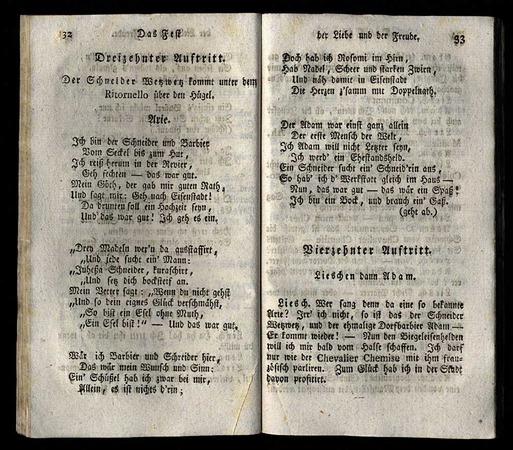 32 Das Fest
Dreizehnter Auftritt.
Der Schneider Wetzwetz kommt unter dem
Ritornello über den Hügel.
Arie.
Ich bin der Schneider und Barbier
Vom Seckel bis zum Hut,
Ich reiß herum in der Revier,
Geh fechten — das war gut.
Mein Göth, der gab mir guten Rath,
Und sagte mir: Geh nach Eisenstadt!
Da drunten soll ein Hochzeit seyn,
Und das war gut! Ich geh es ein.
„Drey Madeln wer'n da ausstaffirt,
„Und jede sucht ein' Mann:
„Juheßa Schneider, kuraschirt,
„Und setz dich bocksteif an.
Mein Vetter sagt: „Wenn du nicht gehst
„Und so dein eignes Glück verschmähst,
„So bist ein Esel ohne Muth,
„Ein Esel bist!“ — Und das war gut.
Wär ich Barbier und Schreiber hier,
Das wär mein Wunsch und Sinn:
Ein' Schüßel hab ich zwar bei mir,
Allein, es ist nichts d'rin;
der Liebe und der Freude. 33
Doch hab ich Rosomi im Hirn,
Hab Nadel, Scheer und starken Zwirn,
Und näh damit in Eisenstadt
Die Herzen z'samm mit Doppelnath.
Der Adam war einst ganz allein
Der erste Mensch der Welt,
Ich Adam will nicht Letzter seyn,
Ich werd' ein Ehestandsheld.
Ein Schneider sucht ein' Schneid'rin ans,
So hab' ich d' Werkstatt gleich im Haus —
Nun, das war gut — das wär ein Spaß!
Ich bin ein Bock, und brauch ein' Gaß.
(geht ab.)
Vierzehnter Auftritt.
Lieschen dann Adam.
Liesch. Wer sang denn da eine so bekannte
Arie? Irr' ich nicht, so ist das der Schneider
Wetzwetz, und der ehmalige Dorfbarbier Adam —
Er kommt wieder! — Nun den Biegeleisenhelden
will ich mir bald vom Halse schaffen. Ich darf
nur wie der Chevalier Chemise mit ihm fran-
zösisch parliren. Zum Glück hab ich in der Stadt
davon profitirt.